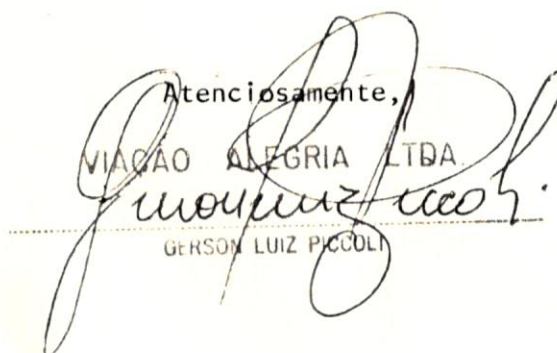 Atenciosamente,
VIAÇÃO ALEGRIA LTDA.
GERSON LUIZ PICCOLI